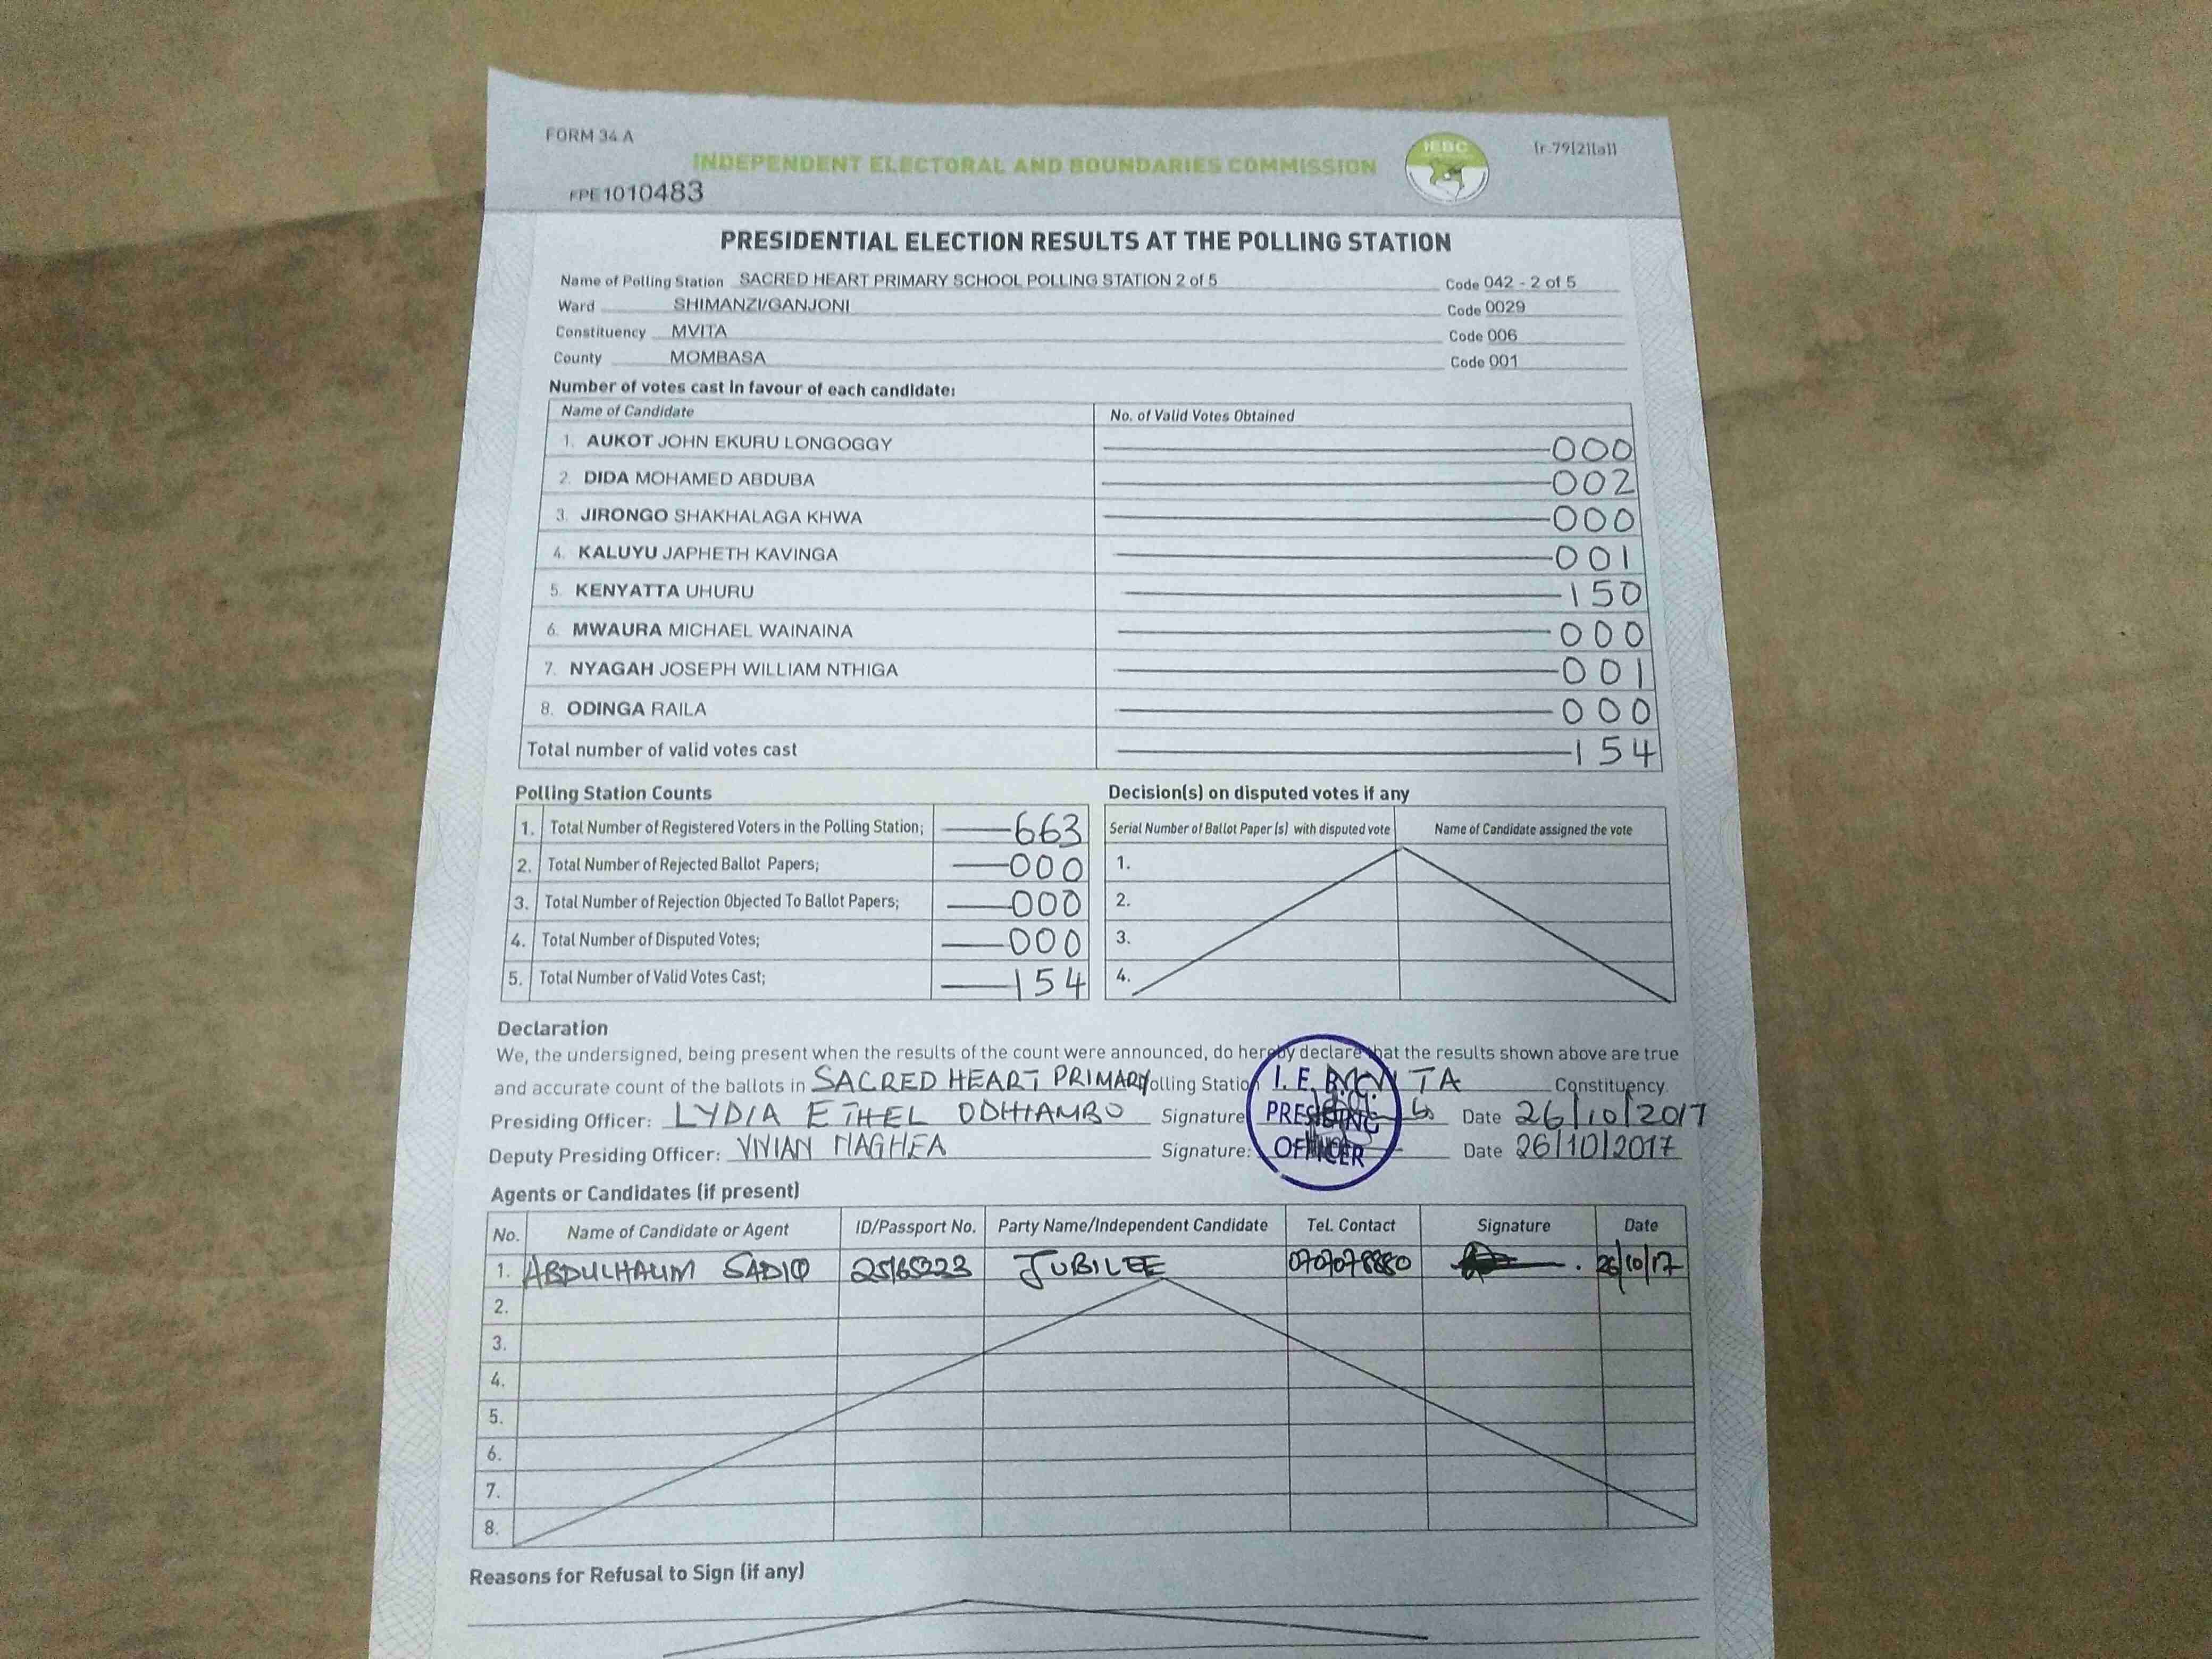 FORM 34 A
INDEPENDENT ELECTORAL AND BOUNDARIES COMMISSION
IEBC
(r.79(2)(a))
FPE1010483
PRESIDENTIAL ELECTION RESULTS AT THE POLLING STATION
Name of Polling Station SACRED HEART PRIMARY SCHOOL POLLING STATION 2 of 5 Code 042 - 2 of 5
Ward SHIMANZI/GANJONI Code 0029
Constituency MVITA Code 006
County MOMBASA Code 001
Number of votes cast in favour of each candidate:
Name of Candidate No. of Valid Votes Obtained
1. AUKOT JOHN EKURU LONGOGGY 000
2. DIDA MOHAMED ABDUBA 002
3. JIRONGO SHAKHALAGA KHWA 000
4. KALUYU JAPHETH KAVINGA 001
5. KENYATTA UHURU 150
6. MWAURA MICHAEL WAINAINA 000
7. NYAGAH JOSEPH WILLIAM NTHIGA 001
8. ODINGA RAILA 000
Total number of valid votes cast 154
Polling Station Counts
1. Total Number of Registered Voters in the Polling Station; 663
2. Total Number of Rejected Ballot Papers; 000
3. Total Number of Rejection Objected To Ballot Papers; 000
4. Total Number of Disputed Votes; 000
5. Total Number of Valid Votes Cast; 154
Decision(s) on disputed votes if any
Serial Number of Ballot Paper (s) with disputed vote Name of Candidate assigned the vote
1.
2.
3.
4.
Declaration
We, the undersigned, being present when the results of the count were announced, do hereby declare that the results shown above are true
and accurate count of the ballots in SACRED HEART PRIMARY olling Station Constituency.
Presiding Officer: LYDIA ETHEL ODHIAMBO Signature Date 26/10/2017
Deputy Presiding Officer: VIVIAN MAGHEA Signature: Date 26/10/2017
PRESIDING
OFFICER
Agents or Candidates (if present)
No. Name of Candidate or Agent ID/Passport No. Party Name/Independent Candidate Tel. Contact Signature Date
1. ABDULHALIM SADIQ JUBILEE 26/10/17
2.
3.
4.
5.
6.
7.
8.
Reasons for Refusal to Sign (if any)